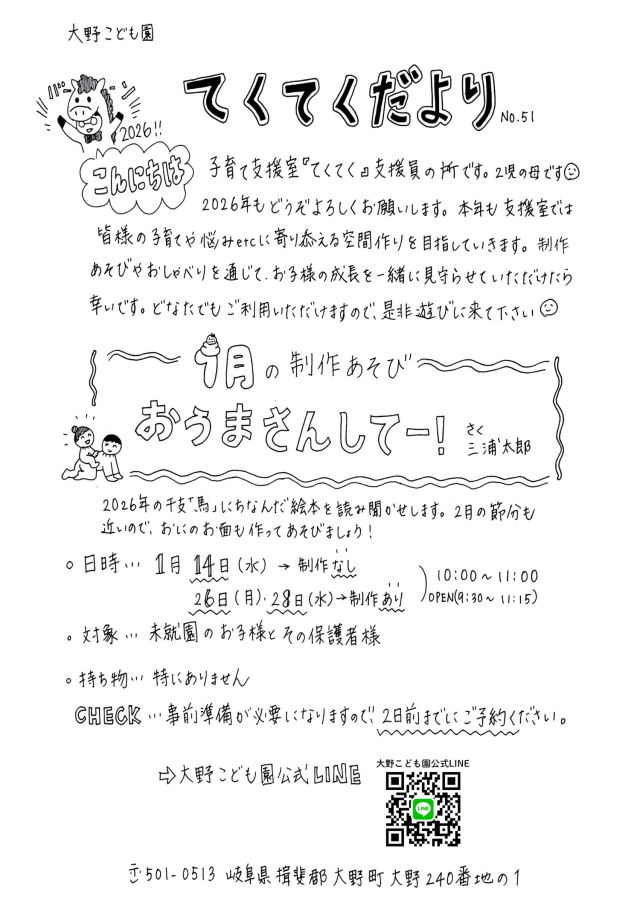 大野こども園
バーーン
てくてくだより No.51
2026!!
こんにちは
子育て支援室『てくてく』支援員の所です。2児の母です
2026年もどうぞよろしくお願いします。本年も支援室では
皆様の子育てや悩みetcに寄り添える空間作りを目指していきます。制作
あそびやおしゃべりを通じて、お子様の成長を一緒に見守らせていただけたら
幸いです。どなたでもご利用いただけますので、是非遊びに来て下さい
1月の制作あそび
おうまさんしてー!
さく
三浦太郎
2026年の干支「馬」にちなんだ絵本を読み聞かせします。2月の節分も
近いので、おにのお面も作ってあそびましょう!
○日時… 1月 14日(水) → 制作なし
26日(月)・28日(水)→制作あり
10:00~11:00
OPEN(9:30~11:15)
○対象… 未就園のお子様とその保護者様
○持ち物… 特にありません
CHECK…事前準備が必要になりますので、2日前までにご予約ください。
⇨大野こども園公式LINE
大野こども園公式LINE
LINE
〒501-0513 岐阜県揖斐郡大野町大野240番地の1